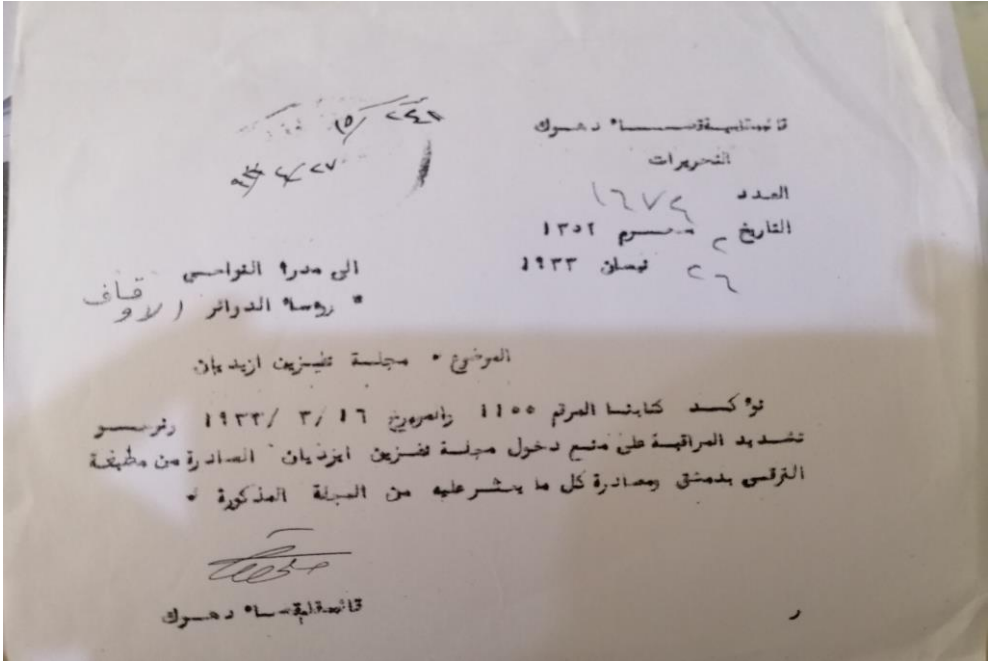 قائمقامية قضاء دهوك
التحريرات
العدد ١٦٧٢
التاريخ ٢ محرم ١٣٥٢
٢٦ نيسان ١٩٣٣
٢٤١ / ١٥
٢٧ / ٤ / ٩٣٣
الى مدراء النواحي
" رؤساء الدوائر الاوقاف
الموضوع • مجلة تفيزين ازيديان
نؤكد كتابنا المرقم ١١٥٥ والمورخ ١٦ /٣ /١٩٣٣ ونرجو
تشديد المراقبة على منع دخول مجلة تفزين ايزديان الصادرة من مطبعة
الترقي بدمشق ومصادرة كل ما يعثر عليه من المجلة المذكورة •
قائمقام قضاء دهوك
ر